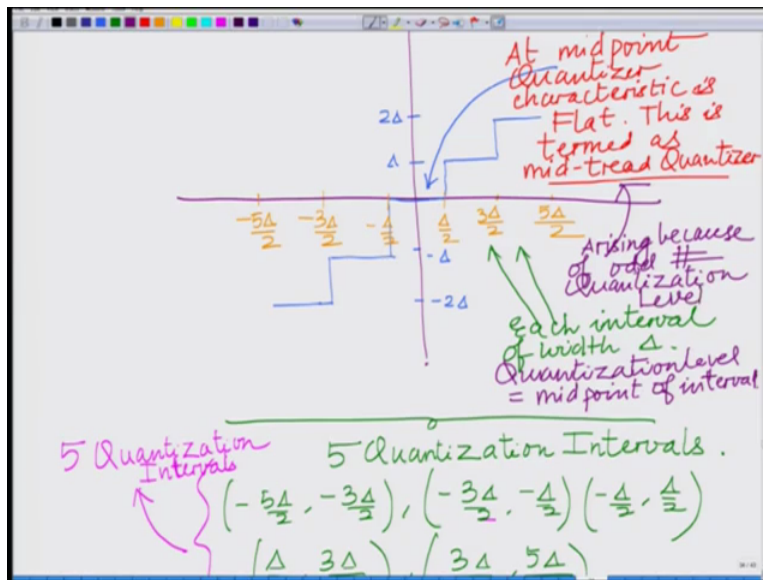 At midpoint
Quantizer
characteristic is
Flat. This is
termed as
mid-tread Quantizer
2Δ
Δ
-5Δ/2 -3Δ/2 -Δ/2 Δ/2 3Δ/2 5Δ/2
-Δ
-2Δ
Arising because
of odd #
Quantization
Level
each interval
of width Δ.
Quantization level
= midpoint of interval
5 Quantization
Intervals
5 Quantization Intervals.
(-5Δ/2, -3Δ/2), (-3Δ/2, -Δ/2) (-Δ/2, Δ/2)
(Δ, 3Δ), (3Δ, 5Δ)